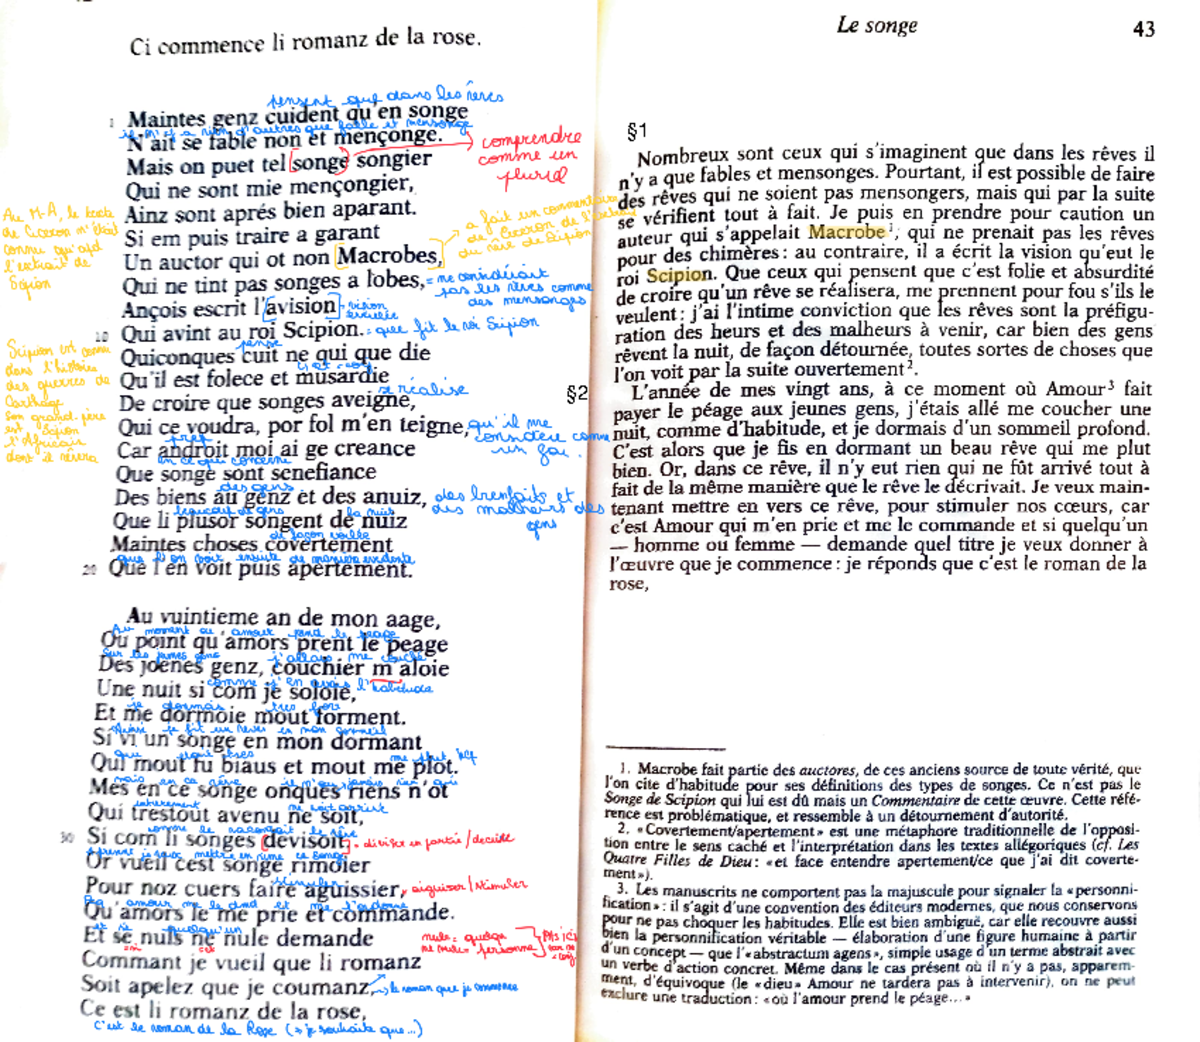 Ci commence li romanz de la rose.
pensent que dans les rêves
1 Maintes genz cuident qu'en songe
il n'y a rien d'autres que fable et mensonge
N'ait se fable non et mençonge.
Mais on puet tel songe songier
comprendre
comme un
pluriel
Qui ne sont mie mençongier,
Ainz sont aprés bien aparant.
Au M-A, le texte
de Ciceron n'était
connu qu'
l'extrait de
Scipion
Si em puis traire a garant
a fait un commentaire
de Ciceron de l'
rêve de Scipion
Un auctor qui ot non Macrobes,
Qui ne tint pas songes a lobes,
= ne considérait
pas les rêves comme
des mensonges
Ançois escrit l'avision
vision
10 Qui avint au roi Scipion.
= que fit le roi Scipion
pense
Quiconques cuit ne qui que die
Qu'il est folece et musardie
se réalise
De croire que songes aveigne,
Qui ce voudra, por fol m'en teigne,
qu'il me
considère comme
un fou.
Scipion est connu
dans l'histoire
des guerres de
Carthage
Son grand-père
est Scipion
l'Africain
dont il rêvera
Car androit moi ai ge creance
en ce qui concerne
Que songe sont senefiance
des gens
Des biens au genz et des anuiz,
des bienfaits et
des malheurs des
gens
beaucoup de gens la nuit
Que li plusor songent de nuiz
de façon voilée
Maintes choses covertement
que l'on voit ensuite de manière évidente
20 Que l'en voit puis apertement.
Au vuintieme an de mon aage,
Au moment où amour prend le péage
Ou point qu'amors prent le peage
sur les jeunes gens j'allais me couché
Des joenes genz, couchier m'aloie
comme j'en avais l'habitude
Une nuit si com je soloie,
je dormais très fort
Et me dormoie mout forment.
je fit un rêves en mon sommeil
Si vi un songe en mon dormant
Qui mout fu biaus et mout me plot.
mais en ce rêve il n'eu jamais rien
Mes en ce songe onques riens n'ot
entièrement ne soit arrivé
Qui trestout avenu ne soit,
comme le racontait le rêve
30 Si com li songes devisoit.
= diviser en partie / decider
je veux mettre en rime ce songe
Or vueil cest songe rimoier
stimuler
Pour noz cuers faire aguissier,
aiguiser/stimuler
Qu'amors le me prie et commande.
et si quelqu'un
Et se nuls ne nule demande
nule = quelque
ne nule = personne
Pas ici
Comment je vueil que li romanz
Soit apelez que je coumanz,
le roman que je commence
Ce est li romanz de la rose,
C'est le roman de la Rose (→ je souhaite que...)
Le songe
43
§1
Nombreux sont ceux qui s'imaginent que dans les rêves il
n'y a que fables et mensonges. Pourtant, il est possible de faire
des rêves qui ne soient pas mensongers, mais qui par la suite
se vérifient tout à fait. Je puis en prendre pour caution un
auteur qui s'appelait Macrobe¹, qui ne prenait pas les rêves
pour des chimères : au contraire, il a écrit la vision qu'eut le
roi Scipion. Que ceux qui pensent que c'est folie et absurdité
de croire qu'un rêve se réalisera, me prennent pour fou s'ils le
veulent : j'ai l'intime conviction que les rêves sont la préfigu-
ration des heurs et des malheurs à venir, car bien des gens
rêvent la nuit, de façon détournée, toutes sortes de choses que
l'on voit par la suite ouvertement².
§2
L'année de mes vingt ans, à ce moment où Amour³ fait
payer le péage aux jeunes gens, j'étais allé me coucher une
nuit, comme d'habitude, et je dormais d'un sommeil profond.
C'est alors que je fis en dormant un beau rêve qui me plut
bien. Or, dans ce rêve, il n'y eut rien qui ne fût arrivé tout à
fait de la même manière que le rêve le décrivait. Je veux main-
tenant mettre en vers ce rêve, pour stimuler nos cœurs, car
c'est Amour qui m'en prie et me le commande et si quelqu'un
— homme ou femme — demande quel titre je veux donner à
l'œuvre que je commence : je réponds que c'est le roman de la
rose,
1. Macrobe fait partie des auctores, de ces anciens source de toute vérité, que
l'on cite d'habitude pour ses définitions des types de songes. Ce n'est pas le
Songe de Scipion qui lui est dû mais un Commentaire de cette œuvre. Cette réfé-
rence est problématique, et ressemble à un détournement d'autorité.
2. «Covertement/apertement» est une métaphore traditionnelle de l'opposi-
tion entre le sens caché et l'interprétation dans les textes allégoriques (cf. Les
Quatre Filles de Dieu : «et face entendre apertement/ce que j'ai dit coverte-
ment»).
3. Les manuscrits ne comportent pas la majuscule pour signaler la «personni-
fication» : il s'agit d'une convention des éditeurs modernes, que nous conservons
pour ne pas choquer les habitudes. Elle est bien ambiguë, car elle recouvre aussi
bien la personnification véritable — élaboration d'une figure humaine à partir
d'un concept — que l'«abstractum agens», simple usage d'un terme abstrait avec
un verbe d'action concret. Même dans le cas présent où il n'y a pas, apparem-
ment, d'équivoque (le «dieu» Amour ne tardera pas à intervenir), on ne peut
exclure une traduction : «où l'amour prend le péage...»